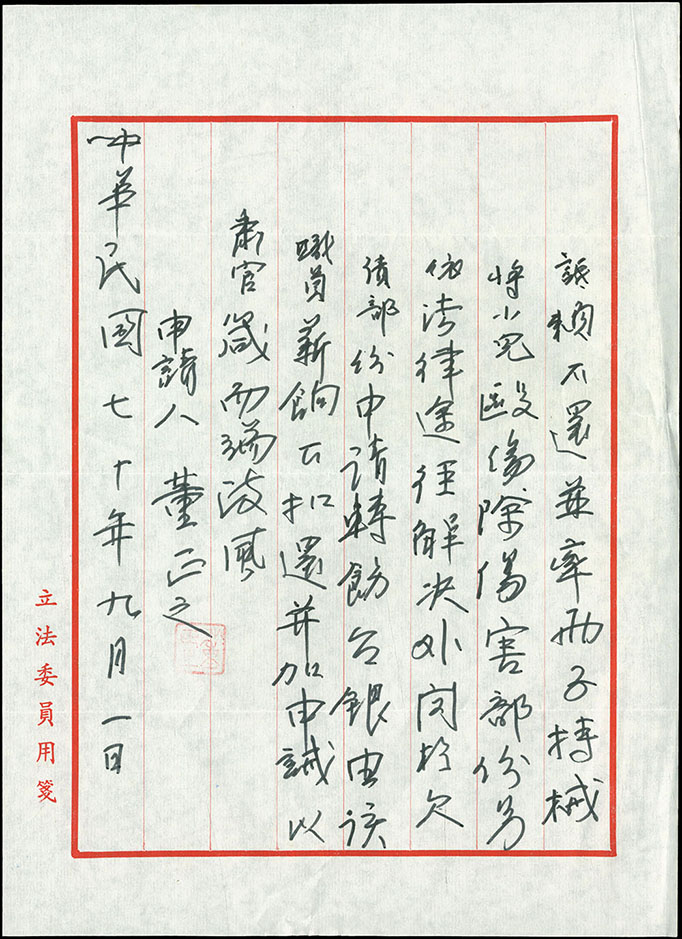 詆賴不還並率兩子持械
將小兒毆傷除傷害部份另
依法律途徑解決外関於欠
債部份申请轉飭台銀由该
職員薪餉下扣還并加申誡以
肅官箴而端政風
申請人 董正之
中華民國七十年九月一日
立法委員用箋